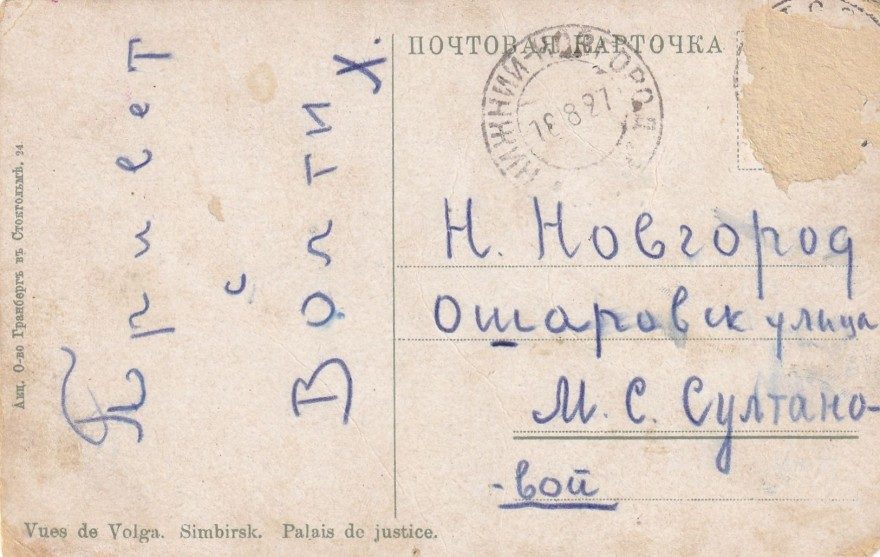 ПОЧТОВАЯ КАРТОЧКА
НИЖНИЙ-НОВГОРОД
8 27
Привет
с
Волги
Х.
Н. Новгород
Ошаровск улица
М. С. Султано-
-вой
Акц. О-во Гранбергъ въ Стокгольмѣ. 24
Vues de Volga. Simbirsk. Palais de justice.